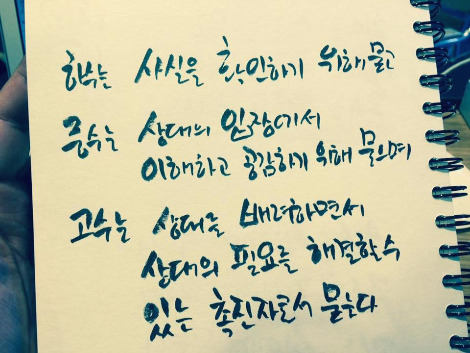 하수는 사실을 확인하기 위해 묻고
중수는 상대의 입장에서
이해하고 공감하기 위해 물으며
고수는 상대를 배려하면서
상대의 필요를 해결할 수
있는 촉진자로서 묻는다